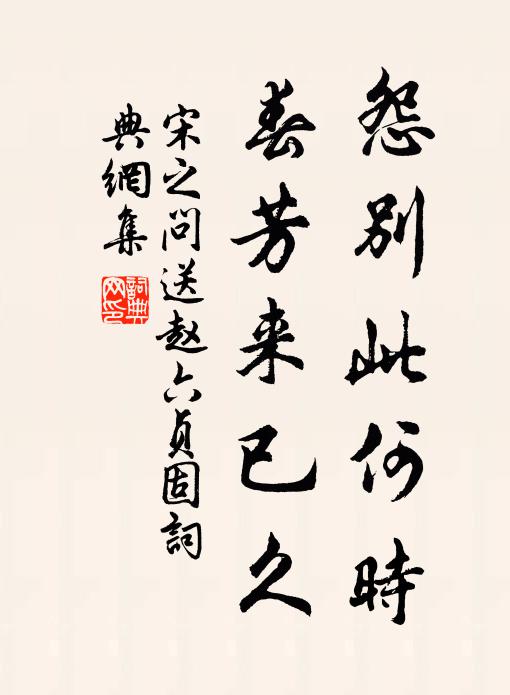 怨别此何時
春芳来已久
宋之问送赵六貞固詞
典網集
詞典
网印